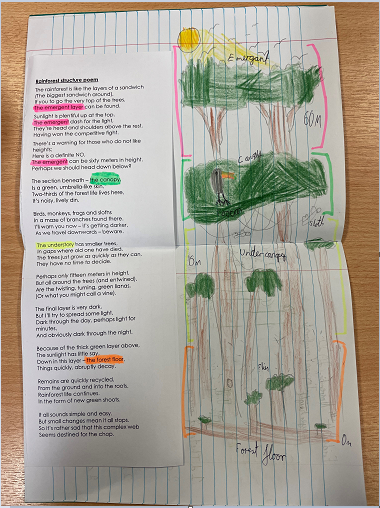 Rainforest structure poem
The rainforest is like the layers of a sandwich
(The biggest sandwich around).
If you to go the very top of the trees,
The emergent layer can be found.
Sunlight is plentiful up at the top,
The emergent dash for the light.
They're head and shoulders above the rest,
Having won the competitive fight.
There's a warning for those who do not like
heights;
Here is a definite NO.
The emergent can be sixty meters in height,
Perhaps we should head down below?
The section beneath – the canopy
Is a green, umbrella-like skin.
Two-thirds of the forest life lives here,
It's noisy, lively din.
Birds, monkeys, frogs and sloths
In a maze of branches found there.
I'll warn you now – it's getting darker,
As we travel downwards – beware.
The understory has smaller trees,
In gaps where old one have died.
The trees just grow as quickly as they can,
They have no time to decide.
Perhaps only fifteen meters in height,
But all around the trees (and entwined),
Are the twisting, turning, green lianas.
(Or what you might call a vine).
The final layer is very dark,
But I'll try to spread some light.
Dark through the day, perhaps light for
minutes,
And obviously dark through the night.
Because of the thick green layer above,
The sunlight has little say.
Down in this layer – The forest floor,
Things quickly, abruptly decay.
Remains are quickly recycled,
From the ground and into the roots.
Rainforest life continues
In the form of new green shoots.
It all sounds simple and easy,
But small changes mean it all stops,
So it's rather sad that this complex web
Seems destined for the chop.
Emergent
60M
15m
Undercanopy
0m
Forest floor